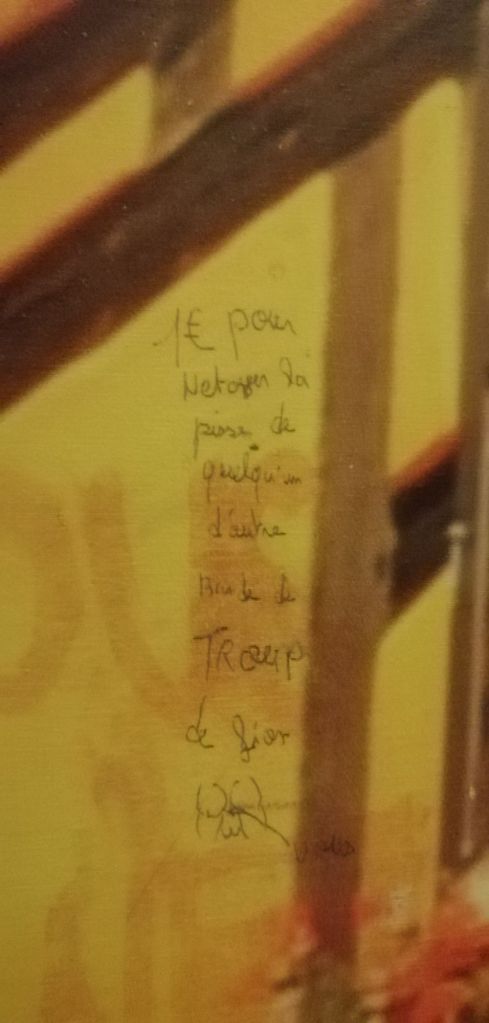 1€ pour
Netoyer la
pisse de
quelqu'un
d'autre
Bande de
TROUP
de